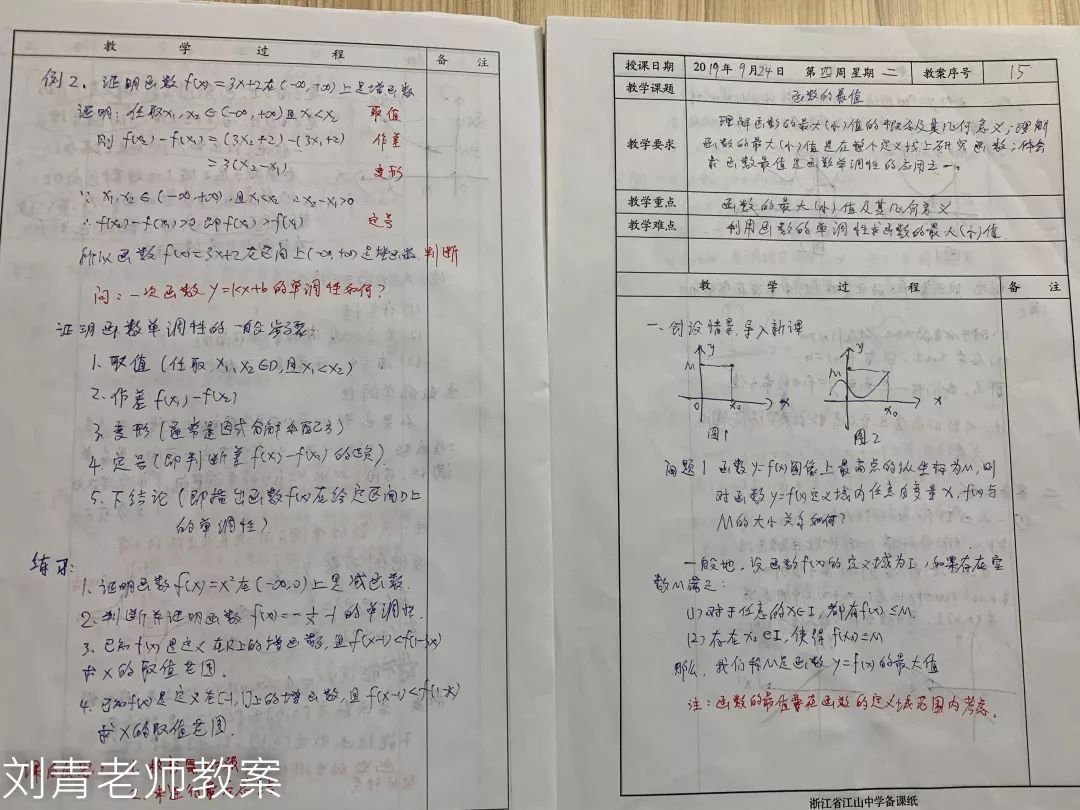 教 学 过 程
备 注
例2、证明函数f(x)=3x+2在(-∞,+∞)上是增函数
证明:任取x₁,x₂∈(-∞,+∞)且x₁<x₂ 取值
则 f(x₂)-f(x₁)=(3x₂+2)-(3x₁+2) 作差
=3(x₂-x₁) 变形
∵ x₁,x₂∈(-∞,+∞),且x₁<x₂ ∴x₂-x₁>0
∴ f(x₂)-f(x₁)>0 即f(x₂)>f(x₁) 定号
所以函数f(x)=3x+2在区间上(-∞,+∞)是增函数 判断
问:一次函数y=kx+b的单调性如何?
证明函数单调性的一般步骤:
1、取值(任取x₁,x₂∈D,且x₁<x₂)
2、作差f(x₁)-f(x₂)
3、变形(通常是因式分解和配方)
4、定号(即判断差f(x₁)-f(x₂)的正负)
5、下结论(即指出函数f(x)在给定区间D上
的单调性)
练习:
1、证明函数f(x)=x²在(-∞,0)上是减函数.
2、判断并证明函数f(x)=-1/x-1的单调性.
3、已知f(x)是定义在R上的增函数,且f(x-1)<f(1-3x)
求x的取值范围.
4、已知f(x)是定义在[-1,1]上的增函数,且f(x-1)<f(1-x)
求x的取值范围.
刘青老师教案
授课日期 2019年9月24日 第四周星期二 教案序号 15
教学课题 函数的最值
教学要求 理解函数的最大(小)值的概念及其几何意义;理解
函数的最大(小)值是在整个定义域上研究函数;体会
求函数最值是函数单调性的应用之一.
教学重点 函数的最大(小)值及其几何意义
教学难点 利用函数的单调性求函数的最大(小)值
教 学 过 程
备 注
一、创设情景,导入新课
y M O x₀ x
图1
y M x₀ x
图2
问题1 函数y=f(x)图像上最高点的纵坐标为M,则
对函数y=f(x)定义域内任意自变量x,f(x)与
M的大小关系如何?
一般地,设函数f(x)的定义域为I,如果存在实
数M满足:
(1)对于任意的x∈I,都有f(x)≤M.
(2)存在x₀∈I,使得f(x₀)=M
那么,我们称M是函数y=f(x)的最大值
注:函数的最值要在函数的定义域范围内考虑.
浙江省江山中学备课纸